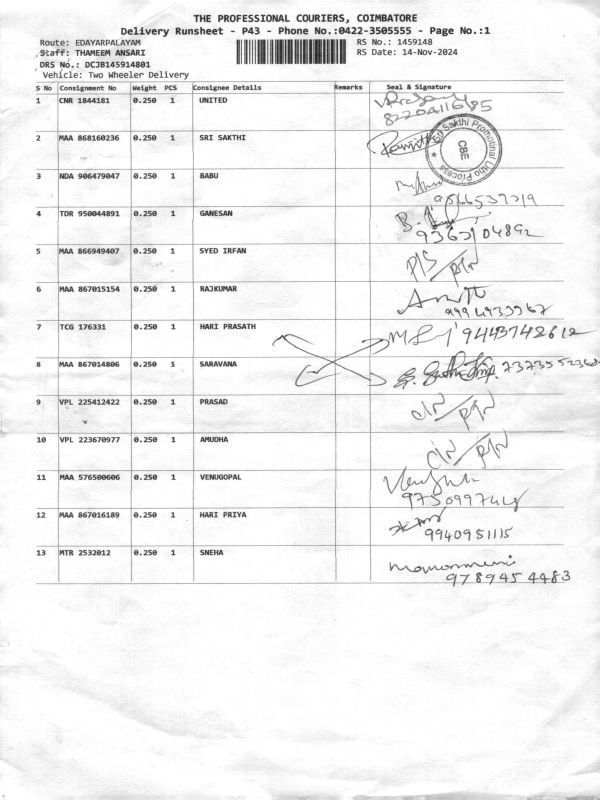 THE PROFESSIONAL COURIERS, COIMBATORE
Delivery Runsheet - P43 - Phone No.:0422-3505555 - Page No.:1
Route: EDAYARPALAYAM RS No.: 1459148
Staff: THAMEEM ANSARI RS Date: 14-Nov-2024
DRS No.: DCJB145914801
Vehicle: Two Wheeler Delivery
S No Consignment No Weight PCS Consignee Details Remarks Seal & Signature
1 CNR 1844181 0.250 1 UNITED
8220411685
2 MAA 868160236 0.250 1 SRI SAKTHI
Sakthi Promotional
CBE
3 NDA 906479047 0.250 1 BABU
4 TDR 950044891 0.250 1 GANESAN
9363104892
5 MAA 866949407 0.250 1 SYED IRFAN P/S
6 MAA 867015154 0.250 1 RAJKUMAR
7 TCG 176331 0.250 1 HARI PRASATH 9443742612
8 MAA 867014806 0.250 1 SARAVANA
9 VPL 225412422 0.250 1 PRASAD
10 VPL 223670977 0.250 1 AMUDHA
11 MAA 576500606 0.250 1 VENUGOPAL
12 MAA 867016189 0.250 1 HARI PRIYA
9940951115
13 MTR 2532012 0.250 1 SNEHA
9789454483